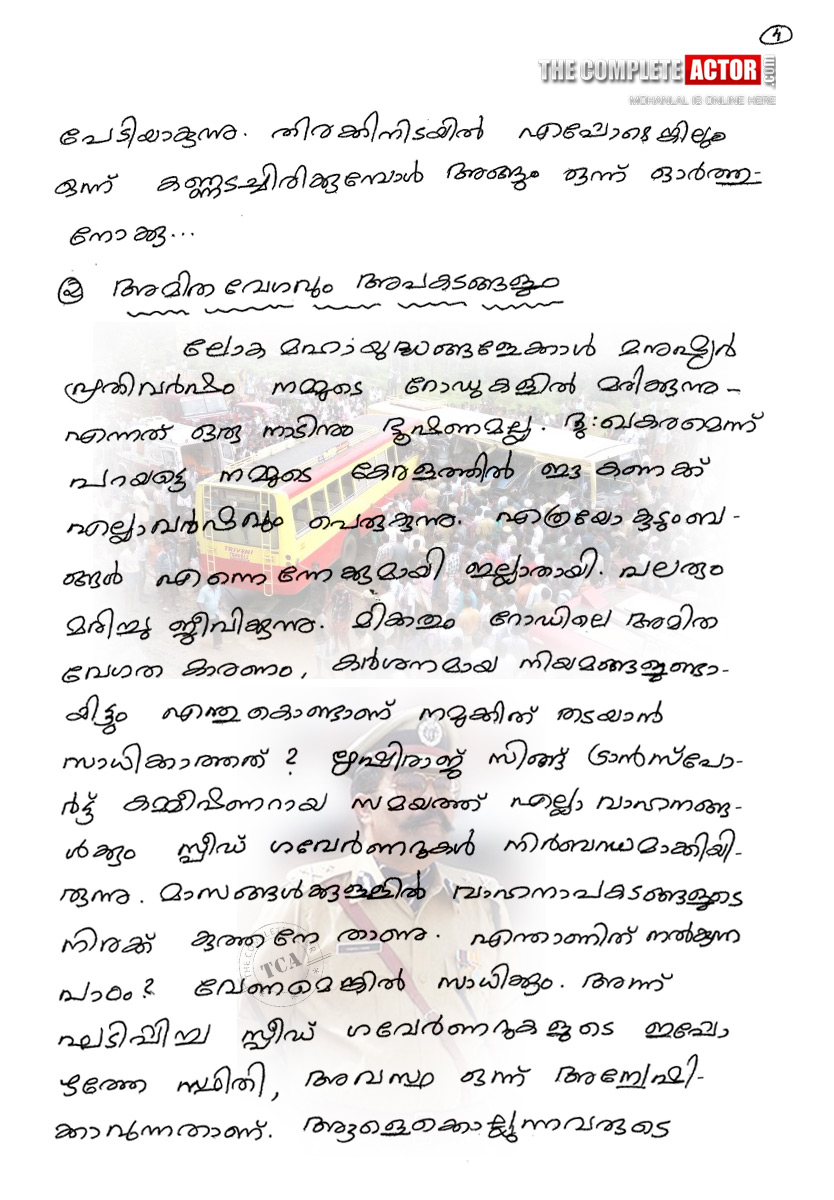 4
THE COMPLETE ACTOR .com
MOHANLAL IS ONLINE HERE
പേടിയാകുന്നു. തിരക്കിനിടയിൽ എപ്പോഴെങ്കിലും
ഒന്ന് കണ്ണടച്ചിരിക്കുമ്പോൾ അങ്ങും ഒന്ന് ഓർത്തു-
നോക്കൂ...
② അമിത വേഗവും അപകടങ്ങളും
ലോക മഹായുദ്ധങ്ങളേക്കാൾ മനുഷ്യർ
പ്രതിവർഷം നമ്മുടെ റോഡുകളിൽ മരിക്കുന്നു -
എന്നത് ഒരു നാടിനും ഭൂഷണമല്ല. ദുഃഖകരമെന്ന്
പറയട്ടെ നമ്മുടെ കേരളത്തിൽ ഈ കണക്ക്
എല്ലാവർഷവും പെരുകുന്നു. എത്രയോ കുടുംബ -
ങ്ങൾ എന്നെന്നേക്കുമായി ഇല്ലാതായി. പലരും
മരിച്ചു ജീവിക്കുന്നു. മിക്കതും റോഡിലെ അമിത
വേഗത കാരണം, കർശനമായ നിയമങ്ങളുണ്ടാ-
യിട്ടും എന്തുകൊണ്ടാണ് നമുക്കിത് തടയാൻ
സാധിക്കാത്തത് ? ഋഷിരാജ് സിങ്ങ് ട്രാൻസ്പോ-
ർട്ട് കമ്മീഷണറായ സമയത്ത് എല്ലാ വാഹനങ്ങ-
ൾക്കും സ്പീഡ് ഗവേർണറുകൾ നിർബന്ധമാക്കിയി-
രുന്നു. മാസങ്ങൾക്കുള്ളിൽ വാഹനാപകടങ്ങളുടെ
നിരക്ക് കുത്തനേ താണു. എന്താണിത് നൽകുന്ന
പാഠം? വേണമെങ്കിൽ സാധിക്കും. അന്ന്
ഘടിപ്പിച്ച സ്പീഡ് ഗവേർണറുകളുടെ ഇപ്പോ
ഴത്തേ സ്ഥിതി, അവസ്ഥ ഒന്ന് അന്വേഷി-
ക്കാവുന്നതാണ്. ആളെക്കൊല്ലുന്നവരുടെ
TRIVENI
TCA